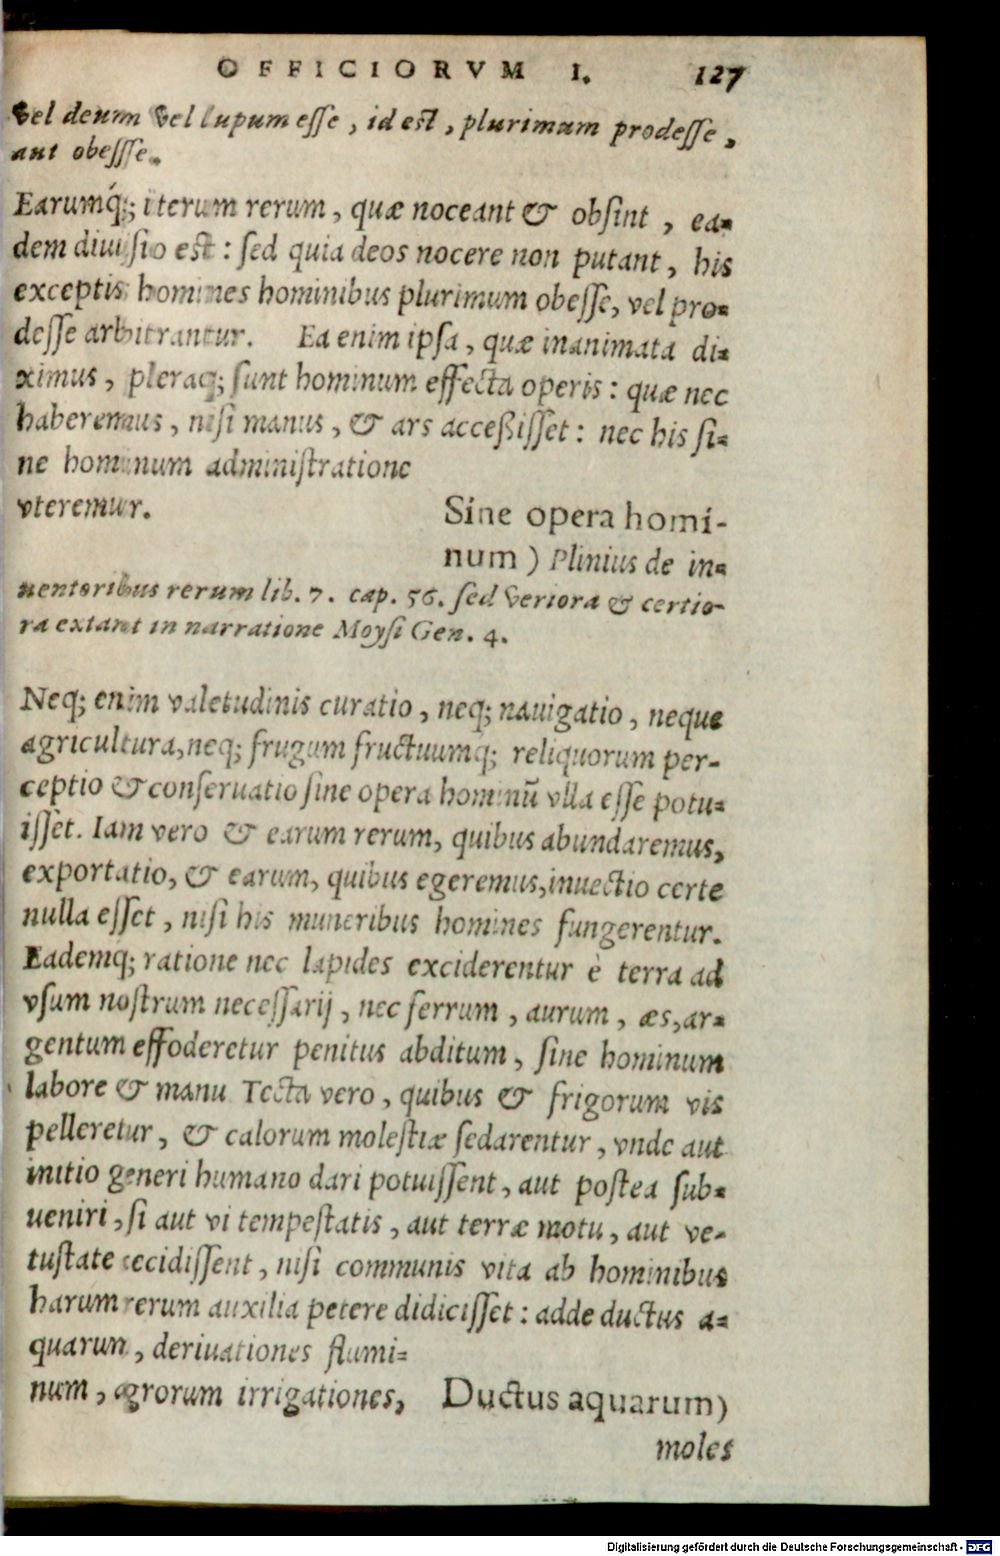 OFFICIORVM I. 127
vel deum vel lupum esse, id est, plurimum prodesse,
aut obessse.
Earumq́; iterum rerum, quæ noceant & obsint, ea-
dem diuisio est: sed quia deos nocere non putant, his
exceptis homines hominibus plurimum obesse, vel pro-
desse arbitrantur. Ea enim ipsa, quæ inanimata di-
ximus, pleraq; sunt hominum effecta operis: quæ nec
haberemus, nisi manus, & ars acceßisset: nec his si-
ne hominum administratione
vteremur.
Sine opera homi-
num) Plinius de in-
uentoribus rerum lib. 7. cap. 56. sed veriora & certio-
ra extant in narratione Moysi Gen. 4.
Neq; enim valetudinis curatio, neq; nauigatio, neque
agricultura, neq; frugum fructuumq; reliquorum per-
ceptio & conseruatio sine opera hominũ vlla esse potu-
isset. Iam vero & earum rerum, quibus abundaremus,
exportatio, & earum, quibus egeremus, inuectio certe
nulla esset, nisi his muneribus homines fungerentur.
Eademq; ratione nec lapides exciderentur è terra ad
vsum nostrum necessarij, nec ferrum, aurum, æs, ar-
gentum effoderetur penitus abditum, sine hominum
labore & manu Tecta vero, quibus & frigorum vis
pelleretur, & calorum molestiæ sedarentur, vnde aut
initio generi humano dari potuissent, aut postea sub-
ueniri, si aut vi tempestatis, aut terræ motu, aut ve-
tustate cecidissent, nisi communis vita ab hominibus
harum rerum auxilia petere didicisset: adde ductus a-
quarum, deriuationes flumi-
num, agrorum irrigationes, Ductus aquarum)
moles
Digitalisierung gefördert durch die Deutsche Forschungsgemeinschaft - DFG